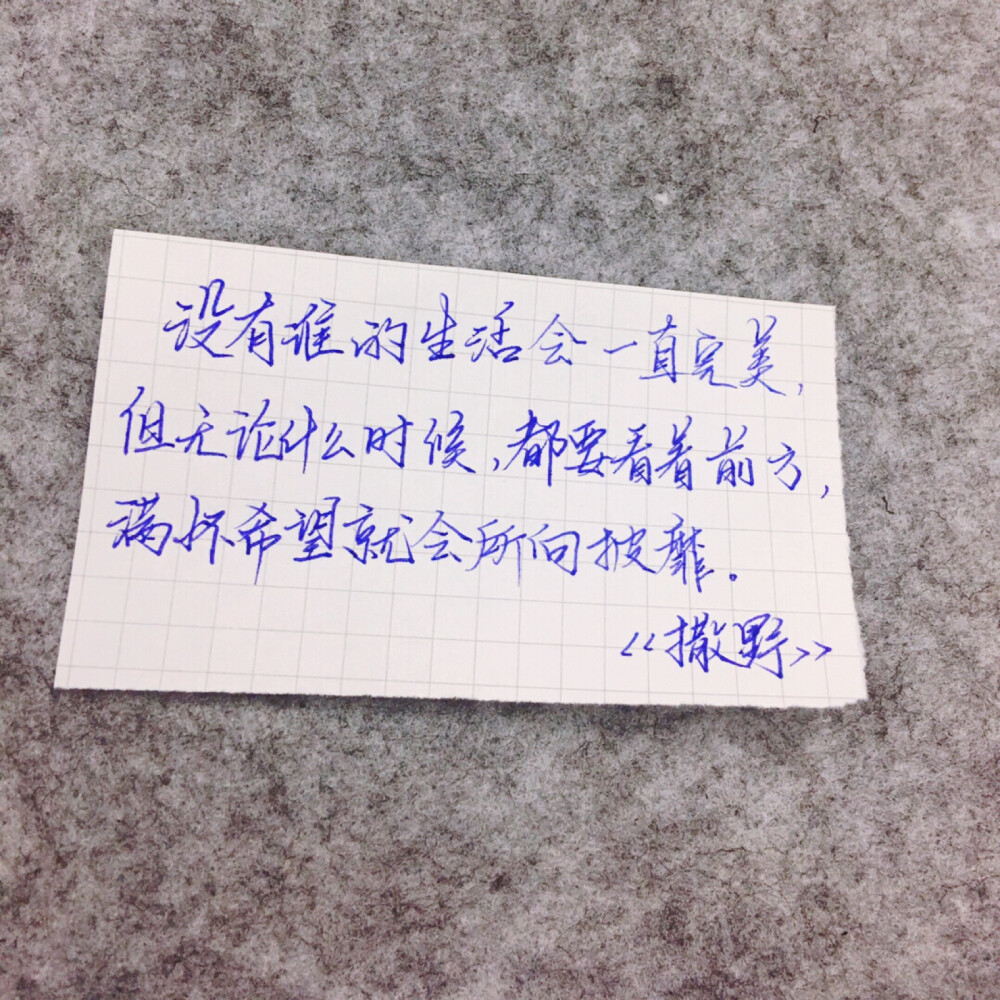 没有谁的生活会一直完美,
但无论什么时候,都要看着前方,
满怀希望就会所向披靡。
《撒野》